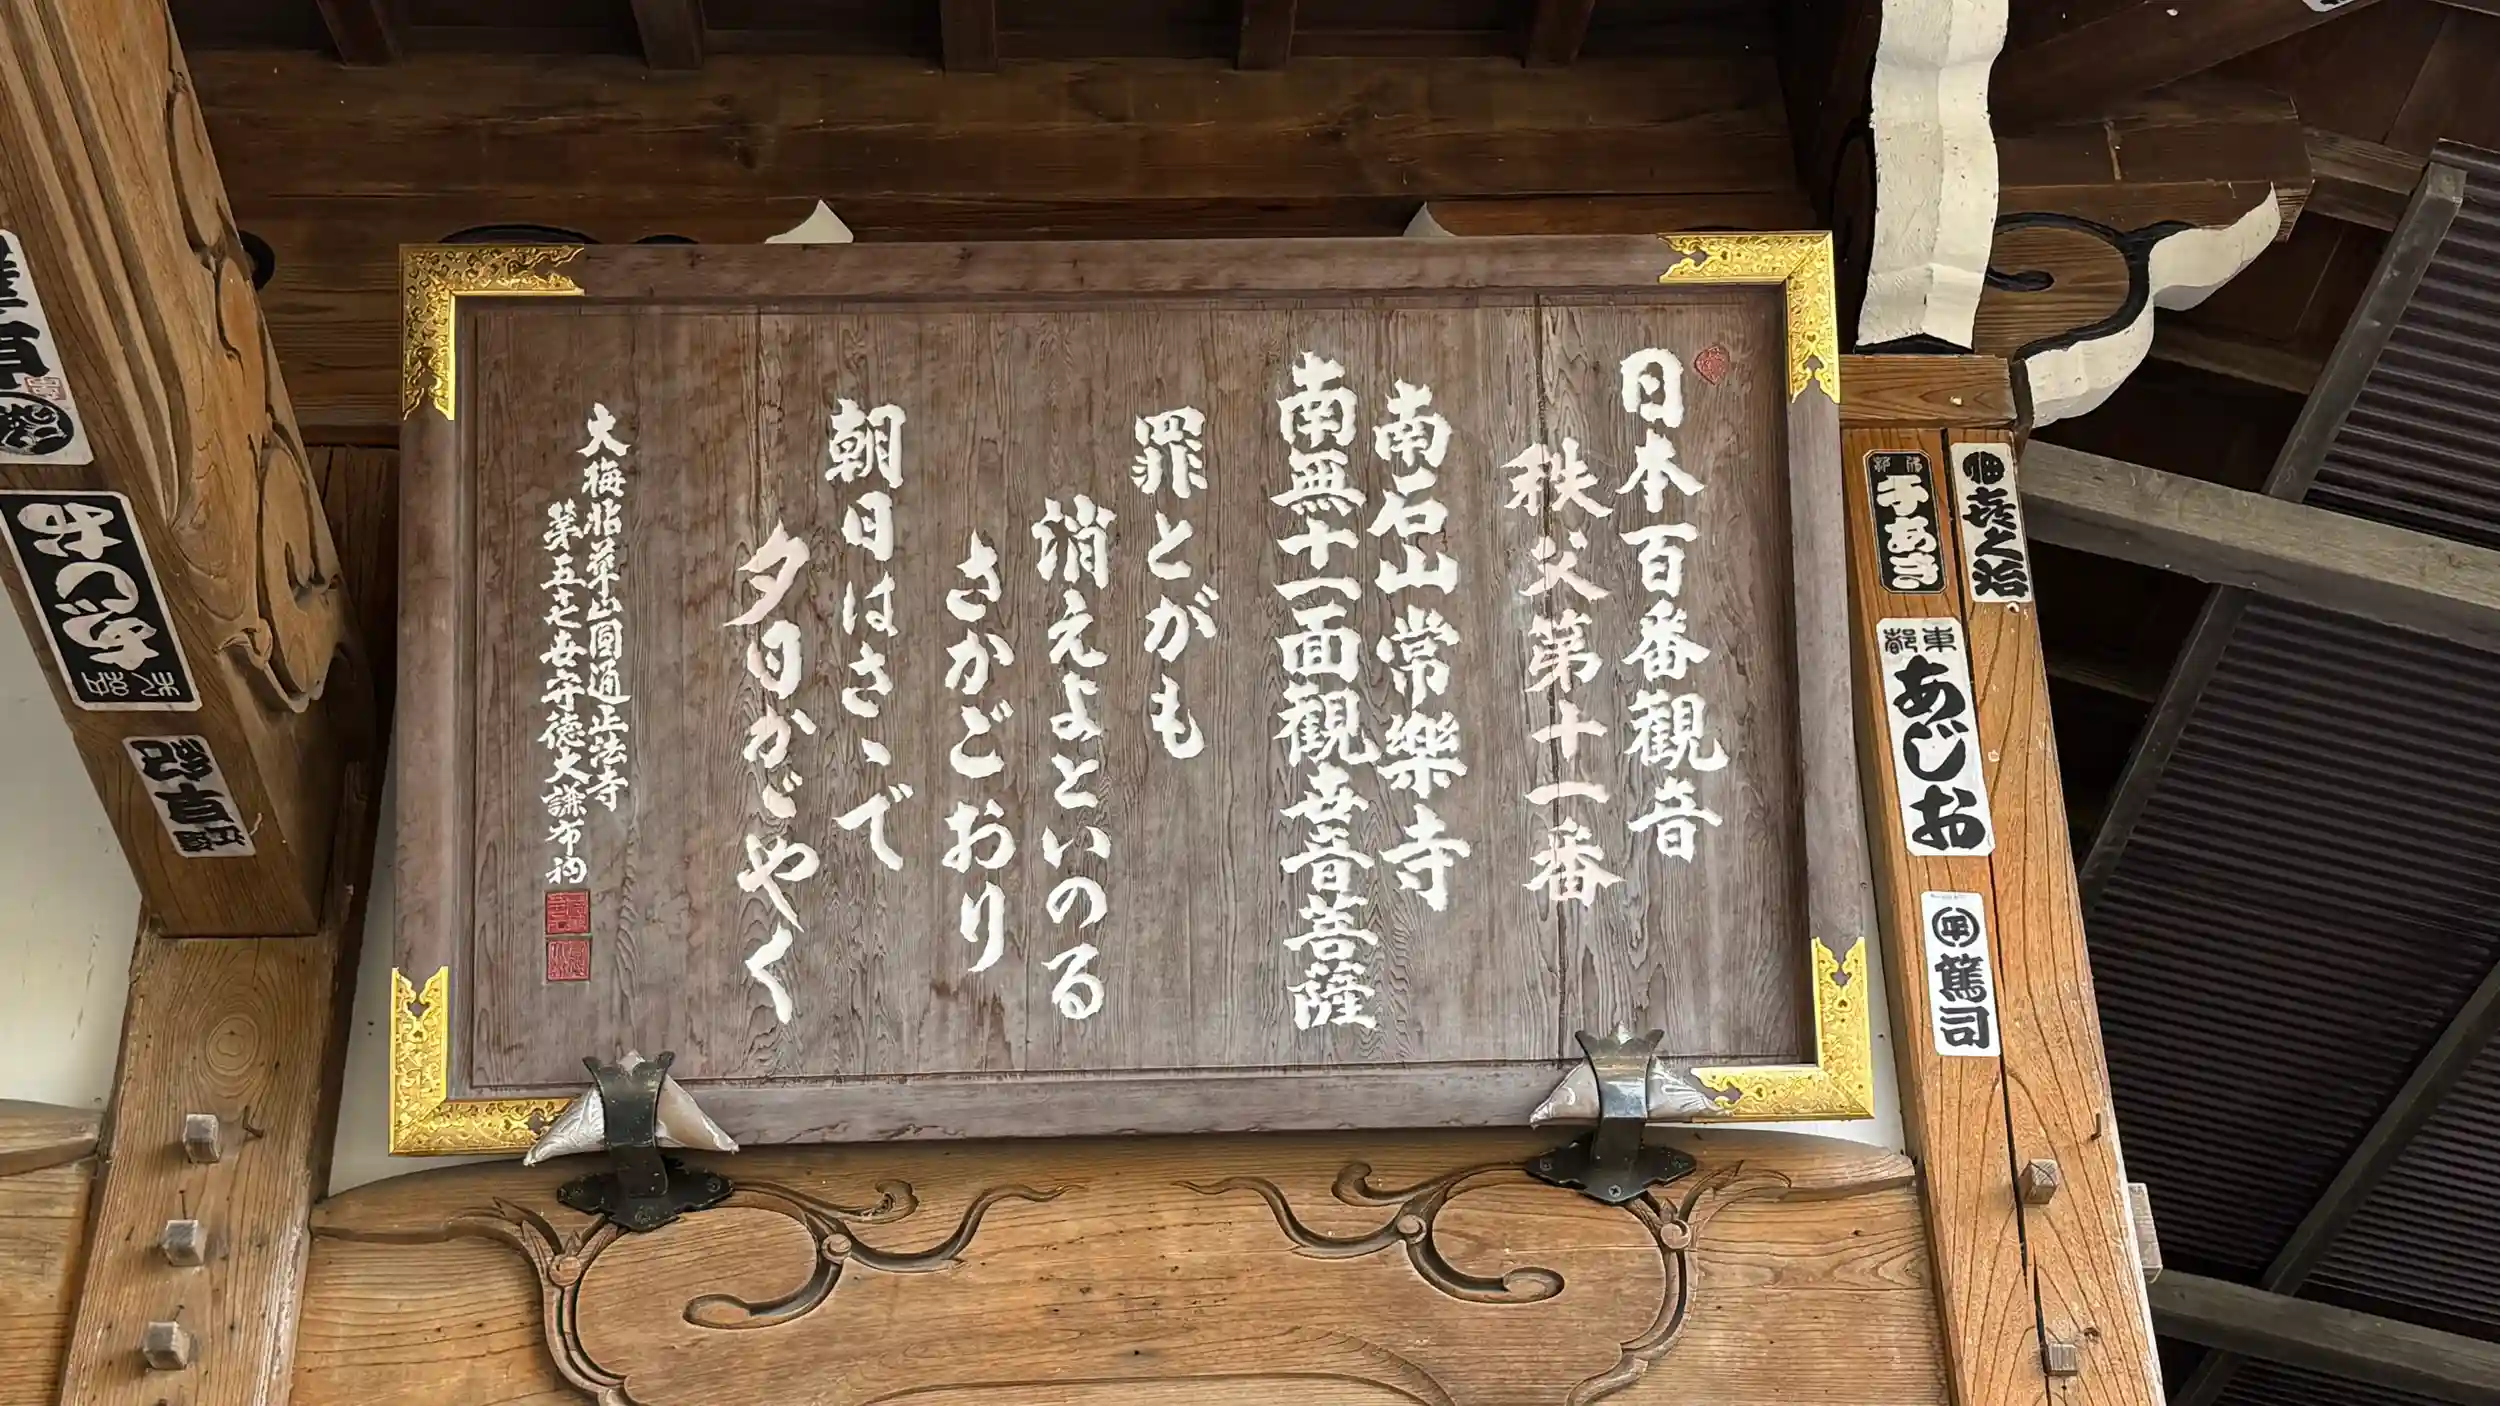 日本百番観音
秩父第十一番
南石山常樂寺
南無十一面観世音菩薩
罪とがも
消えよといのる
さかごおり
朝日はさゝで
夕日かゞやく
大梅拈華山圓通正法寺
第五十七世守徳大謙
千あき
㐂久治
東都
あじお
篤司